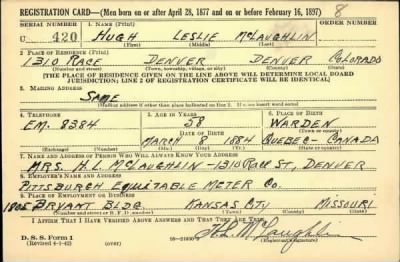 REGISTRATION CARD—(Men born on or after April 28, 1877 and on or before February 16, 1897) 8
SERIAL NUMBER 1. NAME (Print) ORDER NUMBER
U 420 HUGH LESLIE McLAUGHLIN
(First) (Middle) (Last)
2. PLACE OF RESIDENCE (Print)
1310 RACE DENVER DENVER COLORADO
(Number and street) (Town, township, village, or city) (County) (State)
[THE PLACE OF RESIDENCE GIVEN ON THE LINE ABOVE WILL DETERMINE LOCAL BOARD
JURISDICTION; LINE 2 OF REGISTRATION CERTIFICATE WILL BE IDENTICAL]
3. MAILING ADDRESS
SAME
[Mailing address if other than place indicated on line 2. If same insert word same]
4. TELEPHONE 5. AGE IN YEARS 6. PLACE OF BIRTH
58 WARDEN
EM. 8384 DATE OF BIRTH (Town or county)
MARCH 8 1884 QUEBEC-CANADA
(Exchange) (Number) (Mo.) (Day) (Yr.) (State or country)
7. NAME AND ADDRESS OF PERSON WHO WILL ALWAYS KNOW YOUR ADDRESS
MRS. H.L. McLAUGHLIN-1310 RACE ST, DENVER
8. EMPLOYER'S NAME AND ADDRESS
PITTSBURGH EQUITABLE METER CO.
9. PLACE OF EMPLOYMENT OR BUSINESS
1805 BRYANT BLDG. KANSAS CITY MISSOURI
(Number and street or R. F. D. number) (Town) (County) (State)
I AFFIRM THAT I HAVE VERIFIED ABOVE ANSWERS AND THAT THEY ARE TRUE.
D. S. S. Form 1
(Revised 4-1-42) (over) H L McLaughlin